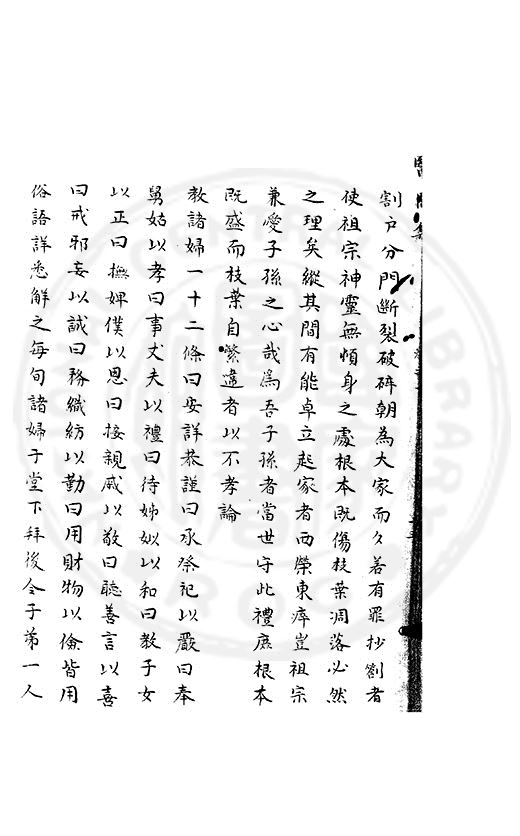 割戶分門斷裂破碎朝為大家而夕若有罪抄劄者
使祖宗神靈無憤身之處根本既傷枝葉凋落必然
之理矣縱其間有能卓立起家者西榮東瘁豈祖宗
兼愛子孫之心哉為吾子孫者當世守此禮庶根本
既盛而枝葉自繁違者以不孝論
教諸婦一十二條曰安詳恭謹曰承祭祀以嚴曰奉
舅姑以孝曰事丈夫以禮曰待娣姒以和曰教子女
以正曰撫婢僕以恩曰接親戚以敬曰聽善言以喜
曰戒邪妄以誠曰務織紡以勤曰用財物以儉皆用
俗語詳悉解之每旬諸婦于堂下拜後令子弟一人